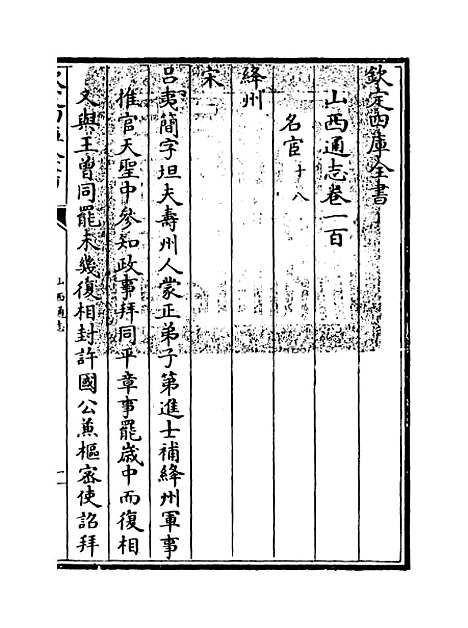 欽定四庫全書
山西通志卷一百
名宦十八
絳州
宋
吕夷簡字坦夫壽州人蒙正弟子第進士補絳州軍事
推官天聖中參知政事拜同平章事罷歲中而復相
又與王曾同罷未幾復相封許國公兼樞密使詔拜
山西通志
一